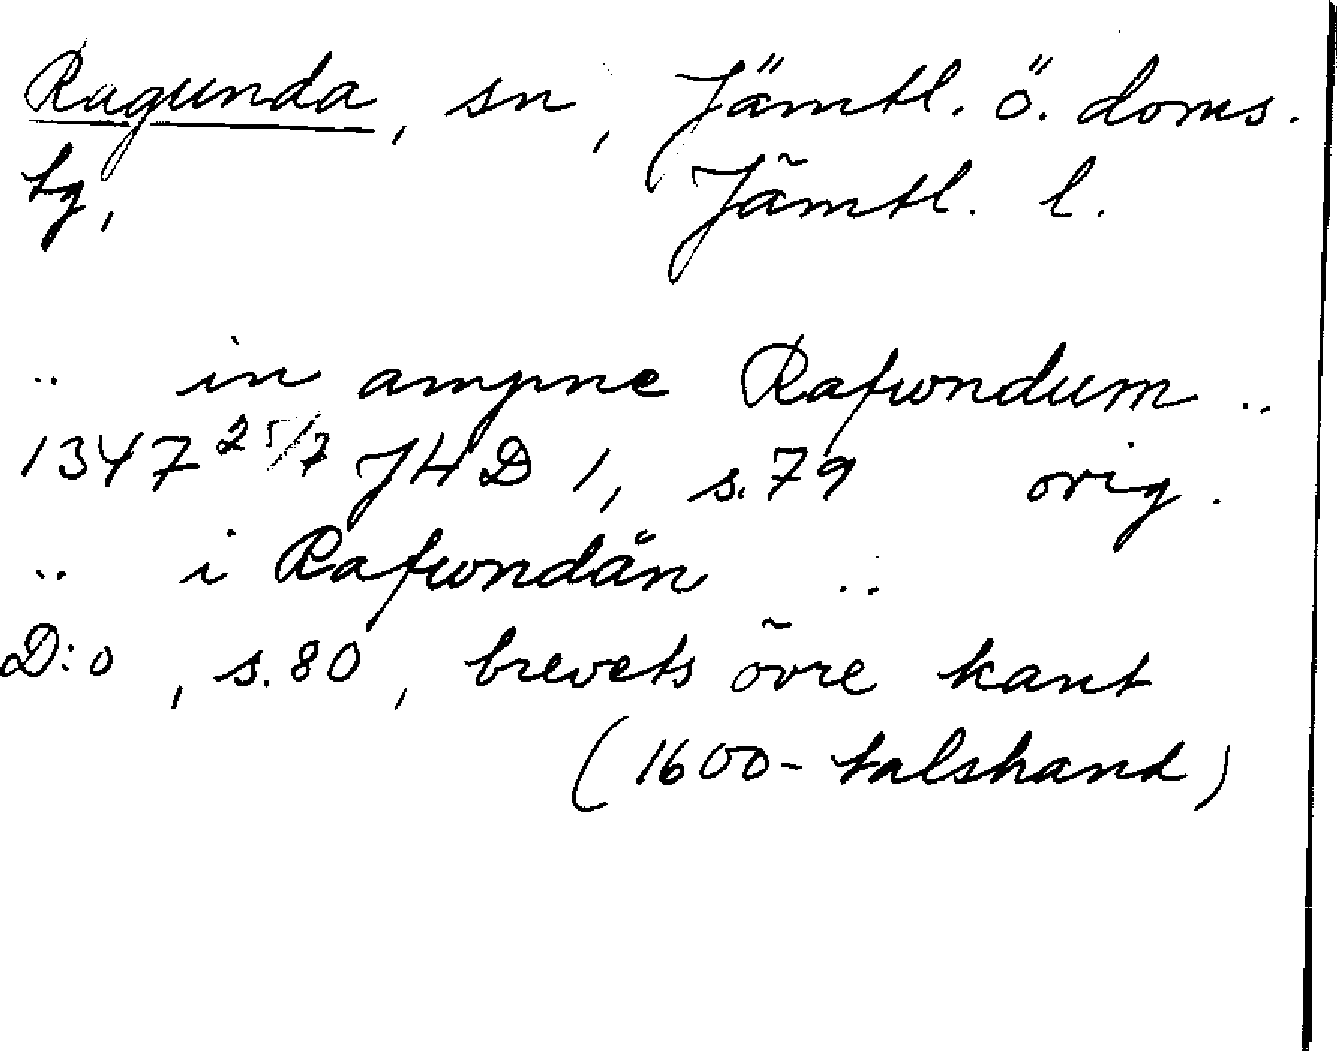 Ragunda, sn, Jämtl. ö. doms.
tg, Jämtl. l.
.. in ampne Rafwndum ..
1347 25/7 JHD 1, s. 79 orig.
.. i Rafwndän ..
D:o, s. 80, brevets övre kant
(1600-talshand)